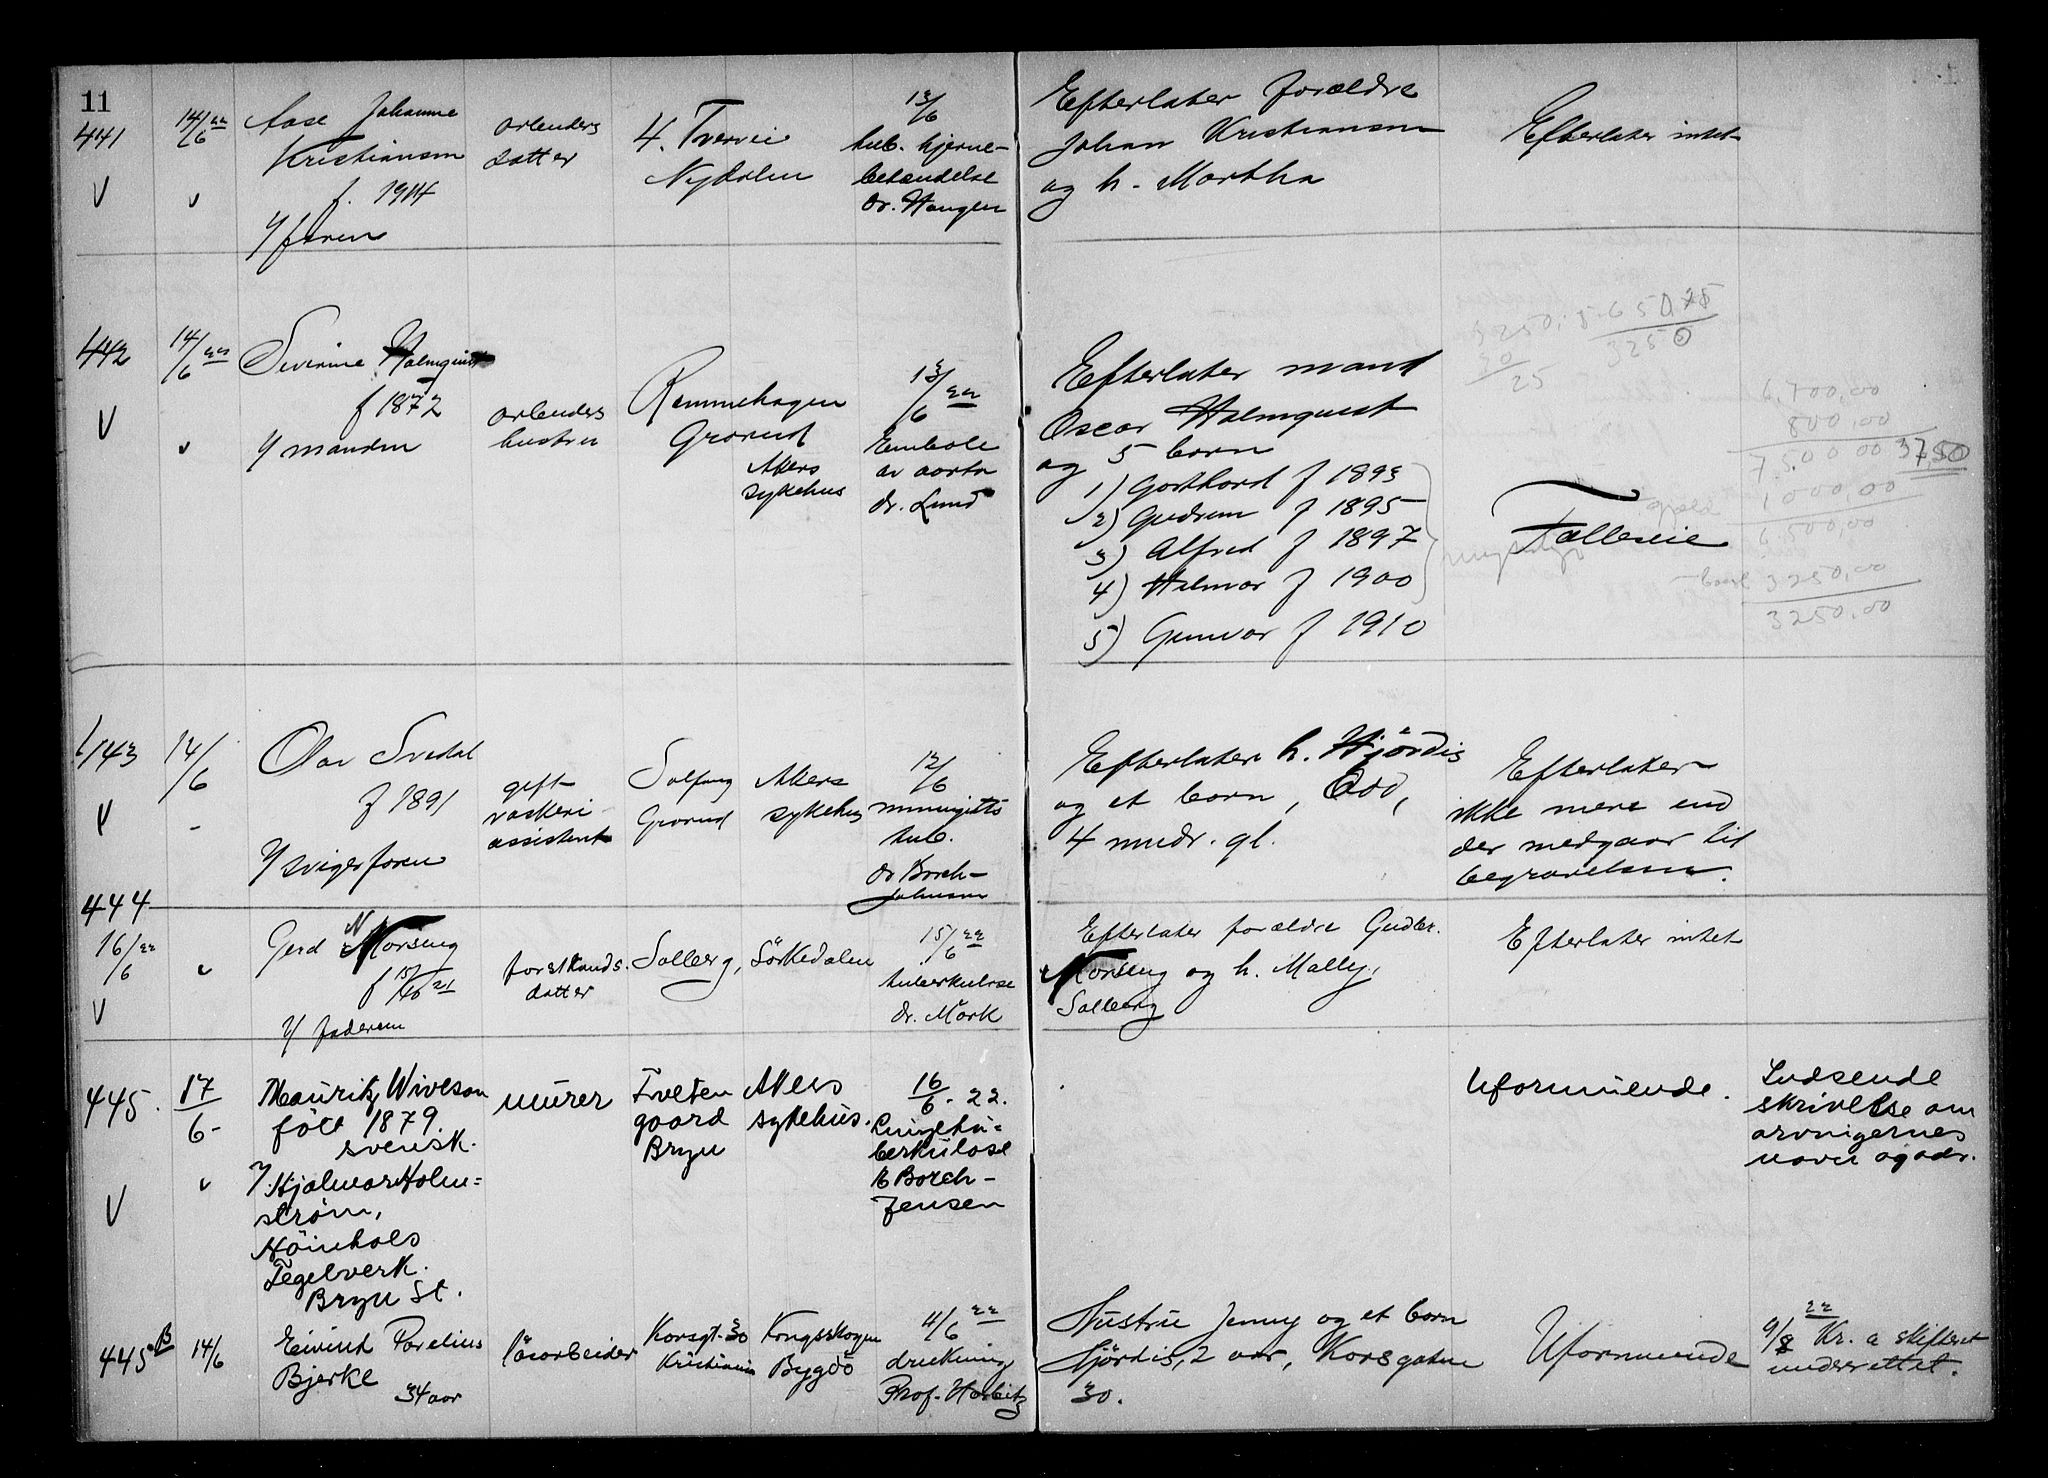 11
441
14/6 22
Aase Johanne
Kristiansen
f. 1914
v/ faren
arbeiders
datter
4. Tvervei
Nydalen
13/6
tub. hjerne-
betændelse
dr. Haugen
Efterlater forældre
Johan Kristiansen
og h. Martha
Efterlater intet
442
14/6 22
Severine Halmquist
f 1872
v/ manden
arbeiders
hustru
Rammehagen
Grorud
Akers
sykehus
13/6 22
Embole
av aorta
dr. Lund
Efterlater mand
Oscar Halmquist
og 5 børn
1) Gotthard f 1893
2) Gudrun f 1895
3) Alfred f 1897
4) Halmar f 1900
5) Gunvor f 1910
myndige
Fælleseie
3250
6,700,00
800,00
7,500,00 37,50
gjeld 1000,00
6,500,00
3250,00
3250,00
443
14/6
Olav Svedal
f 1891
v/ svigerfaren
gift
vaskeri
assistent
Solfang
Grorud
Akers
sykehus
12/6
meningitis
tub.
dr Borch-
Johnsen
Efterlater h. Hjördis
og et barn, Odd,
4 mndr. gl.
Efterlater
ikke mere end
der medgaar til
begravelsen.
444
16/6 22
Gerd Norseng
f 15/10 21
v/ faderen
forstkands.
datter
Solberg, Sörkedalen
15/6 22
tuberkulose
dr. Mork
Efterlater forældre Gudbr.
Norseng og h. Mally,
Solberg
Efterlater intet
445.
17/6-
Mauritz Wiveson
født 1879.
svensk.
v/. Hjalmar Holm=
strøm,
Höinhals
Tegelverk.
Bryn St.
murer
Tveten
gaard
Bryn
Akers
sykehus.
16/6. 22.
Lungetu=
berkulose
Borch-
Jensen
Uformuende.
Indsende
skrivelse om
arvingernes
navn og adr.
445 B
14/6
Eivind Porelius
Bjerke
34 aar
løsarbeider
Korsgt. 30
Kristiania
Kongsskogen
Bygdö
11/6 22
drukning
Prof. Harbitz
Hustru Jenny og et barn
Hjördis, 2 aar, Korsgaten
30.
Uformuende
9/8 22 Kr. a skifteret
underrettet.